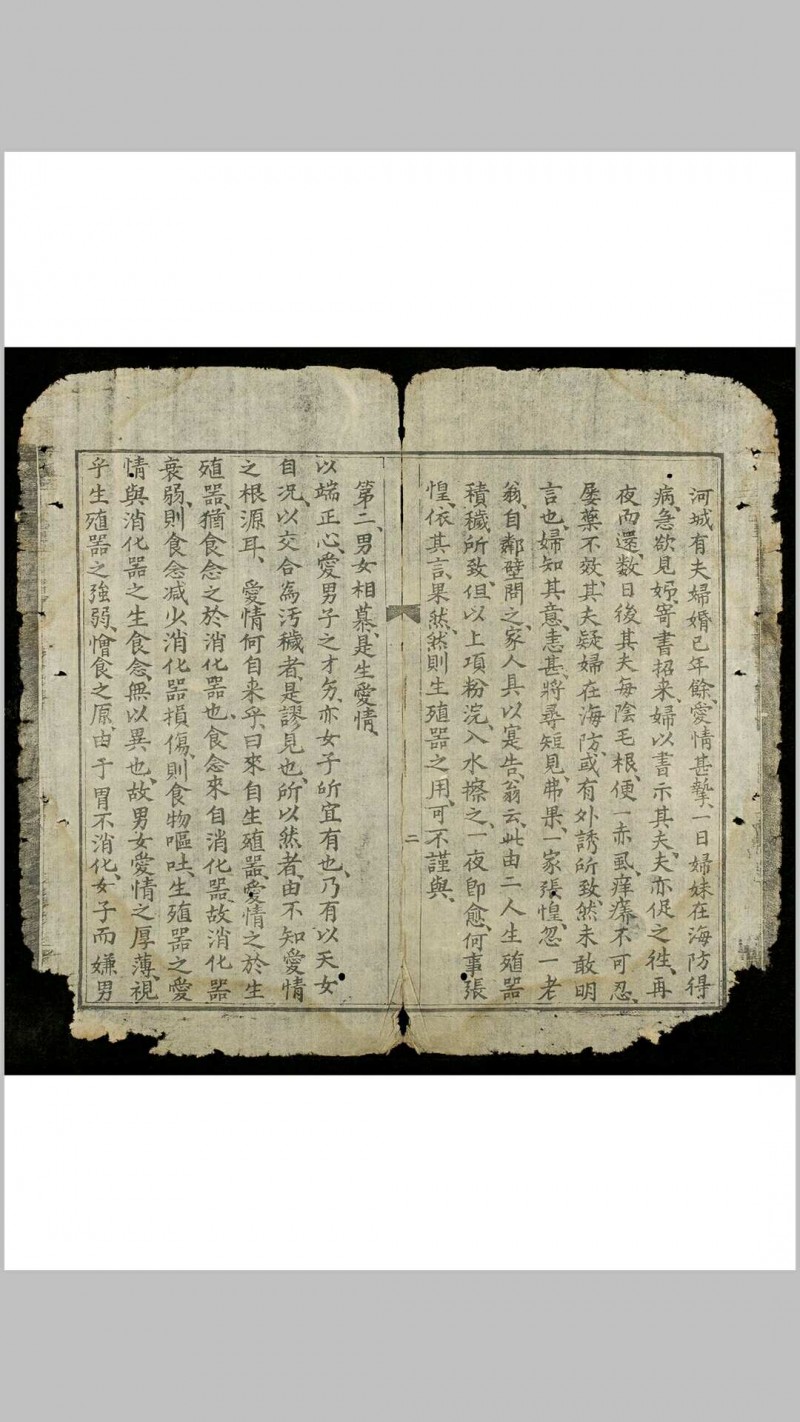 河城有夫婦婚已年餘、愛情甚摯、一日婦妹在海防得
病、急欲見姊、寄書招来、婦以書示其夫、夫亦促之徃、再
夜而還、数日後其夫每陰毛根、便一赤虱、痒癢不可忍、
屡藥不效、其夫疑婦在海防、或有外誘所致、然未敢明
言也、婦知其意、恚甚、將尋短見、弗果、一家張惶、忽一老
翁、自鄰壁問之、家人具以寔告、翁云、此由二人生殖器
積穢所致、但以上項粉浣、入水擦之、一夜即愈、何事張
惶、依其言、果然、然則生殖器之用、可不謹與、
二
第二、男女相慕、是生愛情、
以端正心、愛男子之才、亦女子所宜有也、乃有以天女
自况、以交合爲汚穢者、是謬見也、所以然者、由不知愛情
之根源耳、愛情何自来乎、曰來自生殖器、愛情之於生
殖器、猶食念之於消化器也、食念來自消化器、故消化器
衰弱、則食念减少、消化器損傷、則食物嘔吐、生殖器之愛
情與消化器之生食念、無以異也、故男女愛情之厚薄、視
乎生殖器之強弱、憎食之原、由于胃不消化、女子而嫌男